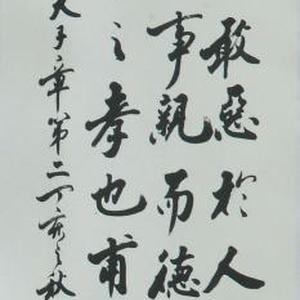 敢惡於人
事親而德
之孝也甫
天子章第二丁亥之秋